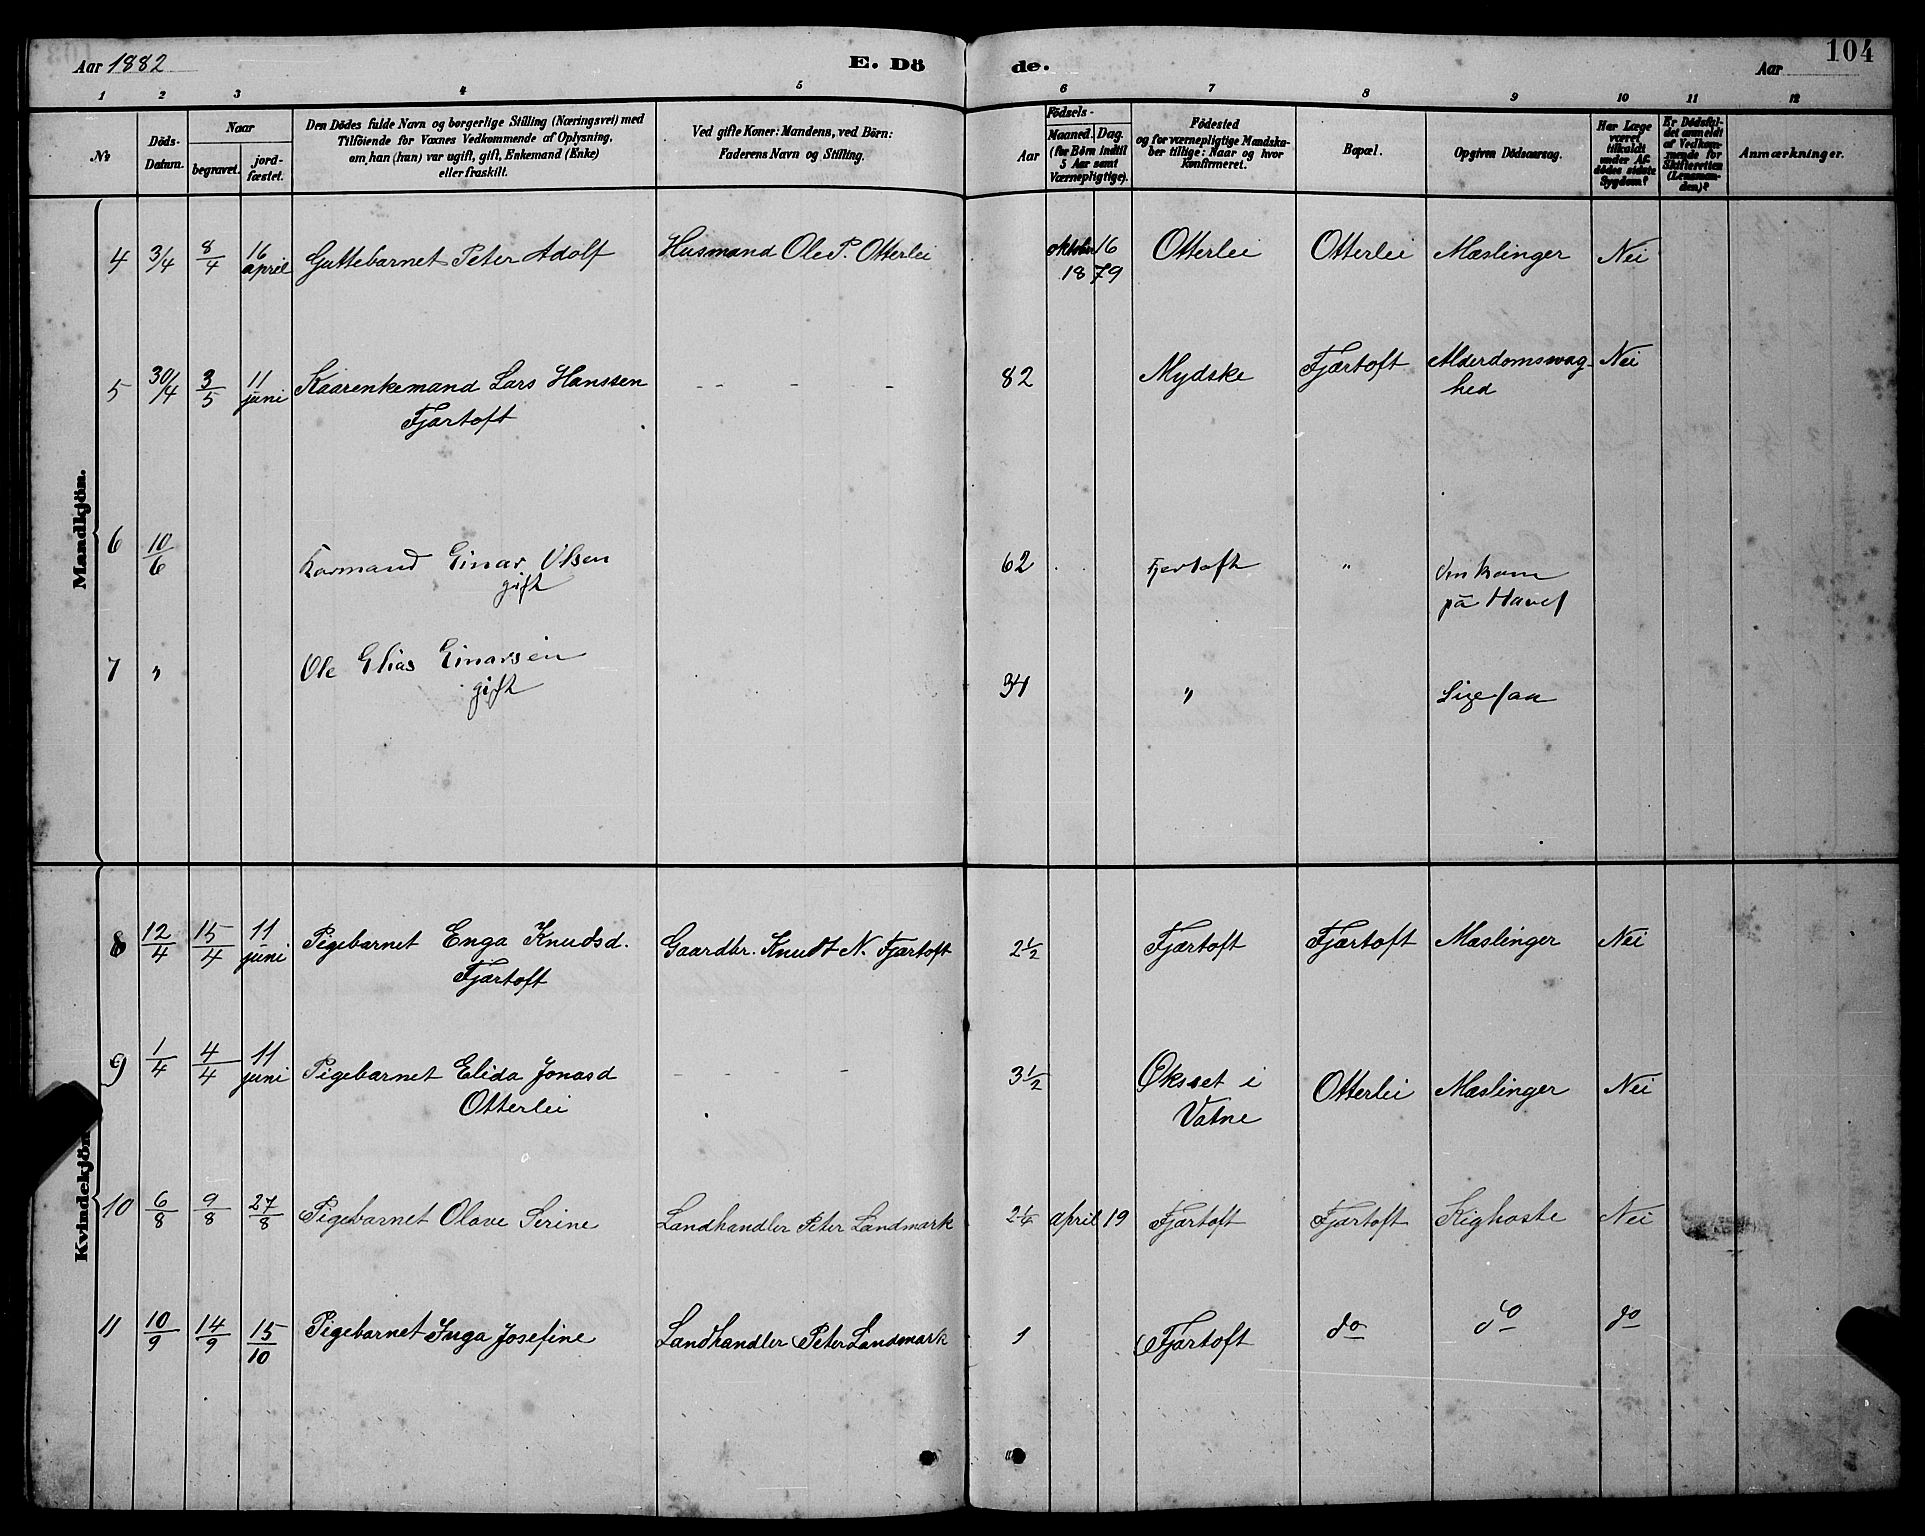 Aar 1882 E. Dö de. Aar 104
1 2 3 4 5 6 7 8 9 10 11 12
№ Döds-Datum. Naar begravet. jord-fæstet. Den Dödes fulde Navn og borgerlige Stilling (Næringsvei) med Tilföiende for Voxnes Vedkommende af Oplysning, om han (hun) var ugift, gift, Enkemand (Enke) eller fraskilt. Ved gifte Koner: Mandens, ved Börn: Faderens Navn og Stilling. Födsels- Aar Maaned. Dag. (for Börn indtil 5 Aar samt Værnepligtige). Födested og for værnepligtige Mandskaber tillige: Naar og hvor konfirmeret. Bopæl. Opgiven Dödsaarsag. Har Læge været tilkaldt under Afdödes sidste Sygdom? Er Dödsfaldet anmeldt af Vedkommende for Skifteretten (Lensmanden)? Anmærkninger.
Mandkjön.
4 3/4 8/4 16 april Guttebarnet Peter Adolf Husmand Ole P. Otterlei oktober 16 1879 Otterlei Otterlei Mæslinger Nei
5 30/4 3/5 11 juni Kaarenkemand Lars Hanssen - - - - 82 Mydske Fjærtoft Alderdomssvag- Nei
Fjærtoft hed
6 10/6 Kormand Einar Olsen 62 Fjertoft " Omkom
gift på Havet
7 " Ole Elias Einarsen 34 " Ligesaa
gift
Kvindekjön
8 12/4 15/4 11 juni Pigebarnet Enga Knudsd. Gaardbr. Knudt N. Fjærtoft 2 1/2 Fjærtoft Fjærtoft Mæslinger Nei
Fjærtoft
9 1/4 4/4 11 juni Pigebarnet Elida Jonasd - - - - 3 1/2 Øksset i Otterlei Mæslinger Nei
Otterlei Vatne
10 6/8 9/8 27/8 Pigebarnet Olave Serine Landhandler Peter Landmark 2 1/4 april 19 Fjærtoft Fjærtoft Kighoste Nei
11 10/9 14/9 15/10 Pigebarnet Inga Josefine Landhandler Peter Landmark 1 Fjærtoft do do do